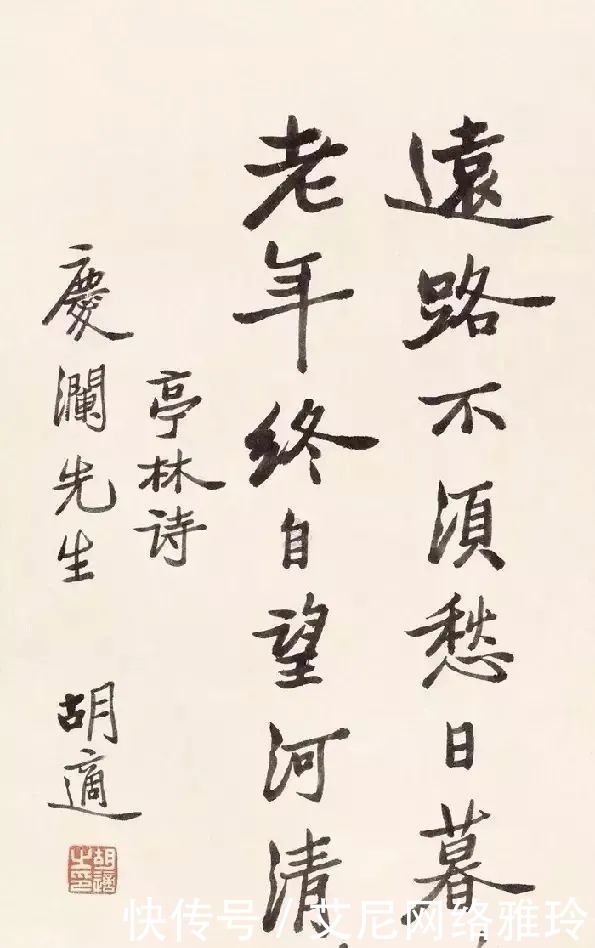 遠路不須愁日暮
老年終自望河清
亭林诗
慶瀾先生 胡適
胡適之印
快传号 / 艾尼网络雅玲